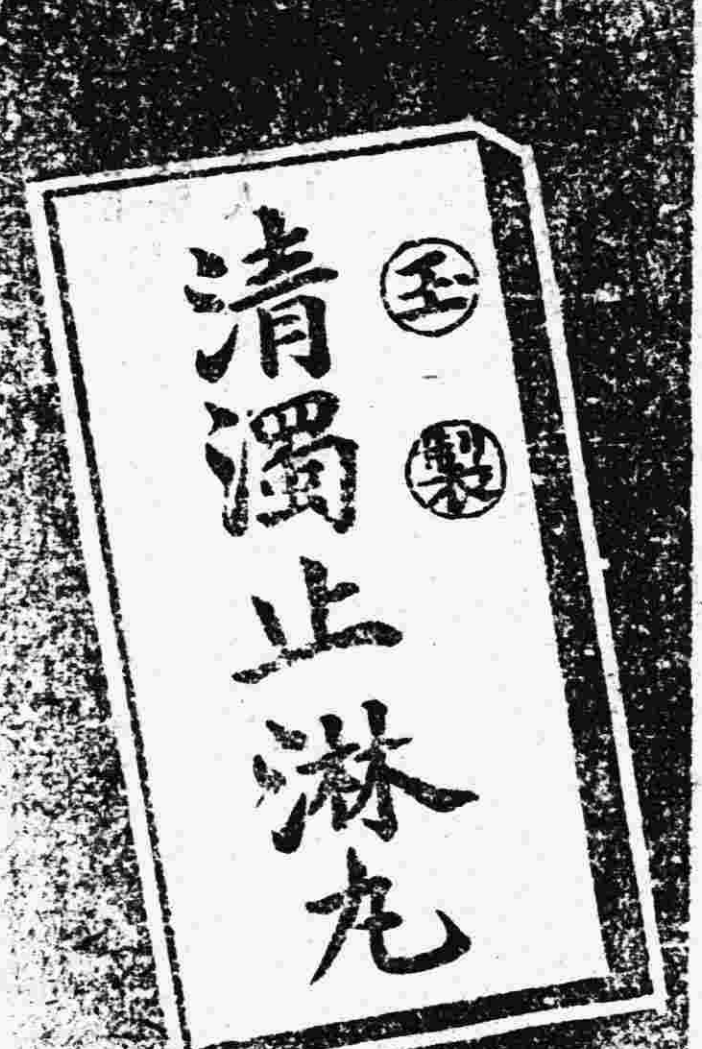 玉製
清濁止淋丸